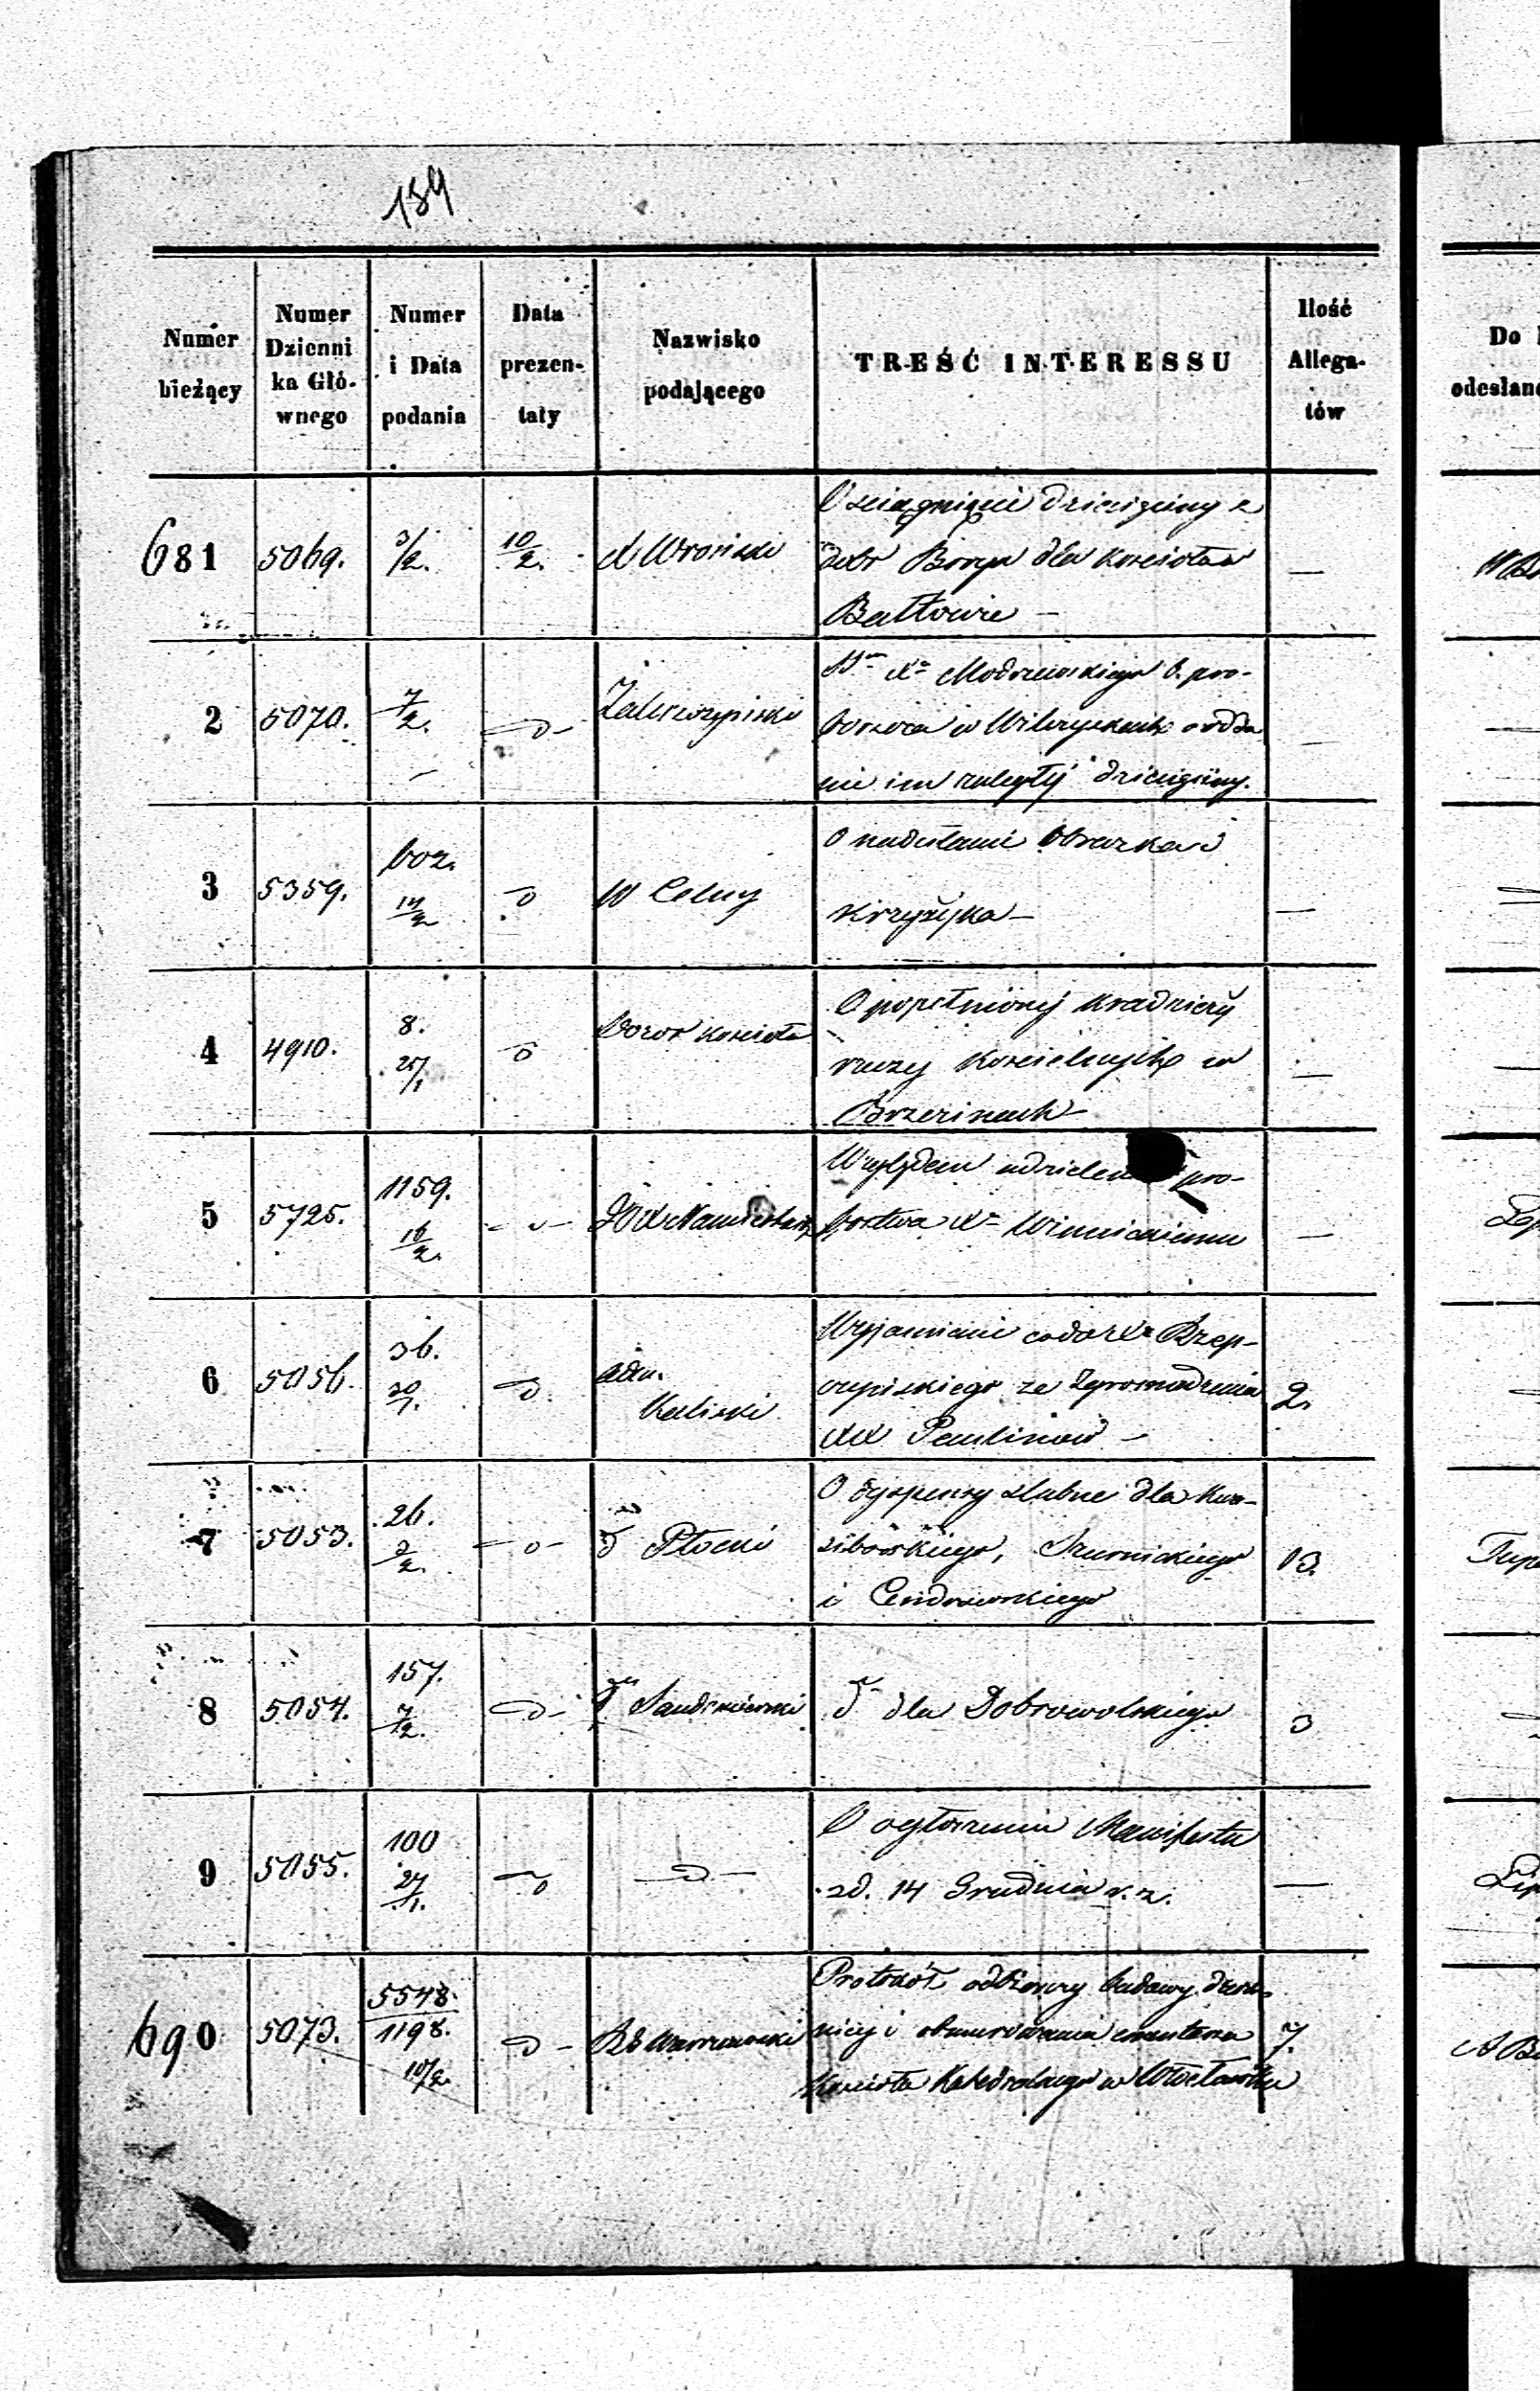 189
Numer bieżący
Numer Dzienni ka Głó- wnego
Numer i Data podania
Data prezen- taty
Nazwisko podającego
TREŚĆ INTERESSU
Ilość Allega- tów
Do
odesłan
681 5069. 3/2. 10/2. X Wroński
O sciągnięcie dziesięciny z
dóbr Borya dla Kościoła w
Bałtowie —
2 5070. 7/2. — d —
Xa Modrzewskiego b. pro-
boszcza w Wilczyskach o odda
nie im zaległéj dziesięciny.
3 5359. 602. 14/2 d W Celny
O nadesłanie Obrazka i
Krzyżyka —
4 4910. 8. 25/1 d Dozor Kościoła
O popełnionéj kradzieży
rzeczy Kościelnych w
Brzezinach
5 5725. 1159. 16/2. — d — JO X Namiestnik
Względem udzielenia pro-
bostwa Xu Winnickiemu —
6 5056. 36. 30/1. d Adm. Kaliski
Wyjaśnienie co do Xa Brzep-
czepiskiego ze Zgromadzenia 2.
XX Paulinów —
7 5053. 26. 3/2. — d — d Płocki
O dyspensy ślubne dla Kwa-
sibórskiego, 13.
i Cendrowskiego
8 5054. 157. 7/2. d — d Sandomierski
d dla Dobrowolskiego 3
9 5055. 100 27/1. d — d —
O ogłoszeniu Manifestu
z d. 14 Grudnia r. z. —
690 5073. 5548. 1198. 10/2. d — RG Warszawski
Protokół odbiorczy budowy dzwo-
nicy i obmurowania cmentarza 7.
Kościoła Katedralnego w Włocławku